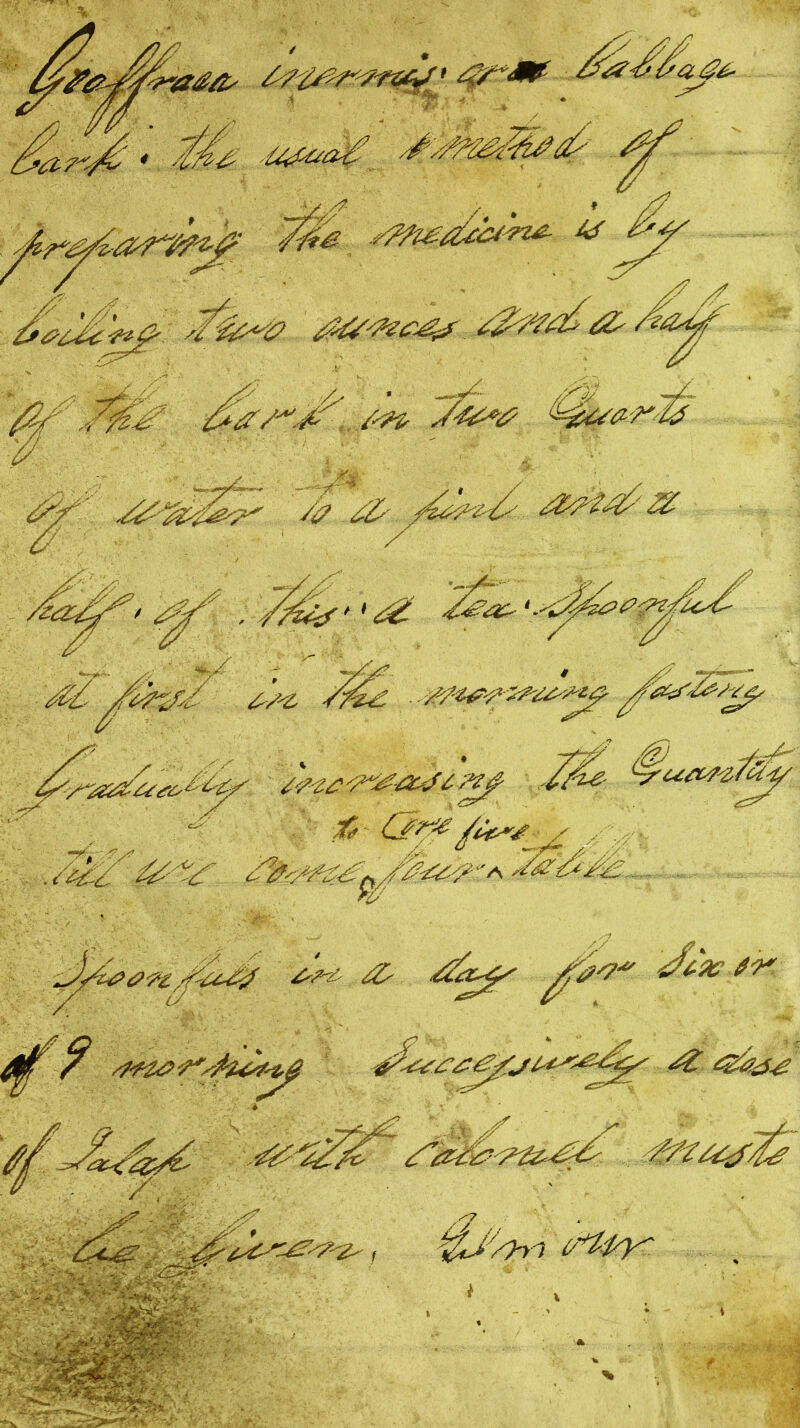 Geoffraea inermis or Cabbage
bark. the usual method of
preparing the medicine is by
boiling two ounces and a half
of the bark in two Quarts
of water to a pint and a
half. of this a tea Spoonful
at first in the morning fasteng
Gradually increasing the Quantity
to five
till we come four ^ table
Spoonfuls in a day for Six or
9 morning Successively a dose
of Jalap with calomel muste
be Given, Gilmour